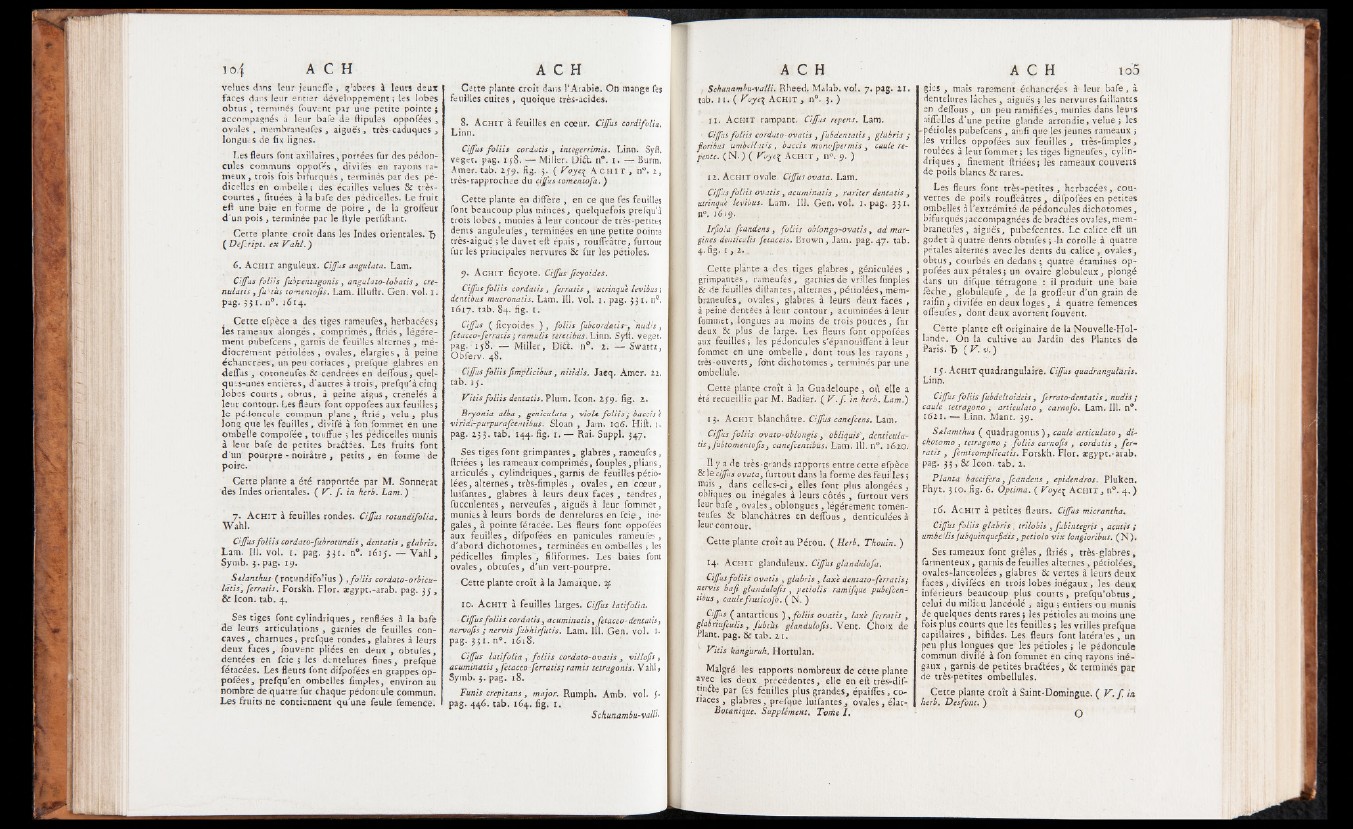 104 A C H
velues dans leur jeunesse, glabres à leurs deux
faces dans leur entier développement; les lobes
obtus, terminés souvent par une petite pointe;
accompagnés à leur base de stipules opposées,
ovales, membraneuses, aiguës, très-caduques,
longues de six lignes.
Les fleurs sont axillaires, portées sur des pédon-
cules communs opposés, divisés en rayons ra-
meux, trois fois bifurqués, terminés par des pé-
dicelles en ombelle; des écailles velues & très-
courtes, situées à la base des pédicelles. Le fruit
est une baie en forme de poire, de la grosseur
d'un pois, terminée par le style persistant.
Cette plante croît dans les Indes orientales. ♄
( Descript. ex Vahl. )
6. ACHIT anguleux. Cissus angulata. Lam.
Cissus foliis subpentagonis, angulato-lobatis, cre-
nulatis, subtùs tomentosis. Lam. Illustr. Gen. vol. 1.
pag. 331. n°. 1614.
Cette espèce a des tiges rameuses, herbacées;
les rameaux alongés, comprimés, striés, légére-
ment pubescens, garnis de feuilles alternes, mé-
diocrement pétiolées, ovales, élargies, à peine
échancrées, un peu coriaces, presque glabres en
dessus, cotoneuses & cendrées en dessous, quel-
ques-unes entières, d'autres à trois, presqu'à cinq
lobes courts, obtus, à peine aigus, crenelés à
leur contour. Les fleurs sont opposées aux feuilles;
le pédoncule commun plane, strié, velu, plus
long que les feuilles, divisé à son sommet en une
ombelle composée, touffue; les pédicelles munis
à leur base de petites bractées. Les fruits sont
d'un pourpre-noirâtre, petits, en forme de
poire.
Cette plante a été rapportée par M. Sonnerat
des Indes orientales. ( V. s. in herb. Lam. )
7. ACHIT à feuilles rondes. Cissus rotundifolia.
Wahl.
Cissus foliis cordato-subrotundis, dentatis, glabris.
Lam. Ill. vol. 1. pag. 331. n°. 1615. — Vahl,
Symb. 3. pag. 19.
Sælanthus ( rotundifolius ), foliis cordato-orbicu-
latis, serratis. Forskh. Flor. ægypt.-arab. pag. 35,
& Icon. tab. 4.
Ses tiges sont cylindriques, renflées à la base
de leurs articulations, garnies de feuilles con-
caves, charnues, presque rondes, glabres à leurs
deux faces, souvent pliées en deux, obtuses,
dentées en scie; les dentelures fines, presque
sétacées. Les fleurs sont disposées en grappes op-
posées, presqu'en ombelles simples, environ au
nombre de quatre sur chaque pédoncule commun.
Les fruits ne contiennent qu'une seule semence.
A C H
Cette plante croît dans l'Arabie. On mange ses
feuilles cuites, quoique très-acides.
8. ACHIT à feuilles en cœur. Cissus cordifolia.
Linn.
Cissus foliis cordatis, integerrimis. Linn. Syst.
veget. pag. 158. — Miller. Dict. n°. 1. — Burm.
Amer. tab. 259. fig. 3. ( Voyez ACHIT, n°. 2,
très-rapprochée du cissus tomentosa. )
Cette plante en diffère, en ce que ses feuilles
sont beaucoup plus minces, quelquefois presqu'à
trois lobes, munies à leur contour de très-petites
dents anguleuses, terminées en une petite pointe
très-aiguë; le duvet est épais, roussâtre, surtout
sur les principales nervures & sur les pétioles.
9. ACHIT ficyote. Cissus sicyoides.
Cissus foliis cordatis, serratis, utrinquè levibus;
dentibus mucronatis. Lam. Ill. vol. 1. pag. 331. n°.
1617. tab. 84. fig. 1.
Cissus ( sicyoides ), foliis subcordatis, nudis,
setaceo-serratis; ramulis teretibus. Linn. Syst. veget.
pag. 158. — Miller, Dict. n°. 2. — Swartz,
Observ. 48.
Cissus foliis simplicibus, nitidis. Jacq. Amer. 22.
tab. 15.
Vitis foliis dentatis. Plum. Icon. 259. fig. 2.
Bryonia alba, geniculata, violæ foliis; baccis è
viridi-purpurascentibus. Sloan, Jam. 106. Hist. 1.
pag. 233. tab. 144. fig. 1. — Rai. Suppl. 347.
Ses tiges sont grimpantes, glabres, rameuses,
striées; les rameaux comprimés, souples, plians,
articulés, cylindriques, garnis de feuilles pétio-
lées, alternes, très-simples, ovales, en cœur,
luisantes, glabres à leurs deux faces, tendres,
succulentes, nerveuses, aiguës à leur sommet,
munies à leurs bords de dentelures en scie, iné-
gales, à pointe sétacée. Les fleurs sont opposées
aux feuilles, disposées en panicules rameuses,
d'abord dichotomes, terminées en ombelles; les
pédicelles simples, filiformes. Les baies sont
ovales, obtuses, d'un vert-pourpre.
Cette plante croît à la Jamaïque. ♃
10. ACHIT à feuilles larges. Cissus latifolia.
Cissus foliis cordatis, acuminatis, setaceo-dentatis,
nervosis; nervis subhirsutis. Lam. Ill. Gen. vol. 1.
pag. 331. n°. 1618.
Cissus latifolia, foliis cordato-ovatis, villosis,
acuminatis, setaceo-serratis; ramis tetragonis. Vahl,
Symb. 3. pag. 18.
Funis crepitans, major. Rumph. Amb. vol. 5.
pag. 446. tab. 164. fig. 1.
Schunambu-valli.
A C H
Schunambu-valli. Rheed. Malab. vol. 7. pag. 21.
tab. 11. ( Voyez ACHIT, n°. 3. )
11. ACHIT rampant. Cissus repens. Lam.
Cissus foliis cordato-ovatis, subdentatis, glabris;
floribus umbellatis, baccis monospermis, caule re-
pente. (N.) ( Voyez ACHIT, n°. 9. )
12. ACHIT ovale. Cissus ovata. Lam.
Cissus foliis ovatis, acuminatis, rariter dentatis,
utrinquè levibus. Lam. Ill. Gen. vol. 1. pag. 331.
n°. 1619.
Irsiola scandens, foliis oblongo-ovatis, ad mar-
gines denticulis setaceis. Brown, Jam. pag. 47. tab.
4. fig. 1, 2.
Cette plante a des tiges glabres, géniculées,
grimpantes, rameuses, garnies de vrilles simples
& de feuilles distantes, alternes, pétiolées, mem-
braneuses, ovales, glabres à leurs deux faces,
à peine dentées à leur contour, acuminées à leur
sommet, longues au moins de trois pouces, sur
deux & plus de large. Les fleurs sont opposées
aux feuilles; les pédoncules s'épanouissent à leur
sommet en une ombelle, dont tous les rayons,
très-ouverts, sont dichotomes, terminés par une
ombellule.
Cette plante croît à la Guadeloupe, où elle a
été recueillie par M. Badier. ( V. s. in herb. Lam.)
13. ACHIT blanchâtre. Cissus canescens. Lam.
Cissus foliis ovato-oblongis, obliquis, denticula-
tis, subtomentosis, canescentibus. Lam. Ill. n°. 1620.
Il y a de très-grands rapports entre cette espèce
& le cissus ovata, surtout dans la forme des feuilles;
mais, dans celles-ci, elles sont plus alongées,
obliques ou inégales à leurs côtés, surtout vers
leur base, ovales, oblongues, légérement tomen-
teuses & blanchâtres en dessous, denticulées à
leur contour.
Cette plante croît au Pérou. ( Herb. Thouin. )
14. ACHIT glanduleux. Cissus glandulosa.
Cissus foliis ovatis, glabris, laxè dentato-serratis;
nervis basi glandulosis, petiolis ramisque pubescen-
tibus, caule fruticoso. ( N. )
Cissus ( antarticus ), foliis ovatis, laxè serratis,
glabriusculis, subtùs glandulosis. Vent. Choix de
Plant. pag. & tab. 21.
Vitis kanguruh. Hortulan.
Malgré les rapports nombreux de cette plante
avec les deux précédentes, elle en est très-dis-
tincte par ses feuilles plus grandes, épaisses, co-
riaces, glabres, presque luisantes, ovales, élar-
Botanique. Supplément. Tome I.
A C H 105
gies, mais rarement échancrées à leur base, à
dentelures lâches, aiguës; les nervures saillantes
en dessous, un peu ramifiées, munies dans leurs
aisselles d'une petite glande arrondie, velue; les
pétioles pubescens, ainsi que les jeunes rameaux;
les vrilles opposées aux feuilles, très-simples,
roulées à leur sommet; les tiges ligneuses, cylin-
driques, finement striées; les rameaux couverts
de poils blancs & rares.
Les fleurs sont très-petites, herbacées, cou-
vertes de poils roussâtres, disposées en petites
ombelles à l'extrémité de pédoncules dichotomes,
bifurqués; accompagnées de bractées ovales, mem-
braneuses, aiguës, pubescentes. Le calice est un
godet à quatre dents obtuses; la corolle à quatre
pétales alternes avec les dents du calice, ovales,
obtus, courbés en dedans; quatre étamines op-
posées aux pétales; un ovaire globuleux, plongé
dans un disque tétragone : il produit une baie
sèche, globuleuse, de la grosseur d'un grain de
raisin, divisée en deux loges, à quatre semences
osseuses, dont deux avortent souvent.
Cette plante est originaire de la Nouvelle-Hol-
lande. On la cultive au Jardin des Plantes de
Paris. ♄ ( V. v.)
15. ACHIT quadrangulaire. Cissus quadrangularis.
Linn.
Cissus foliis subdeltoideis, serrato-dentatis, nudis;
caule tetragono, articulato, carnoso. Lam. Ill. n°.
1621. — Linn. Mant. 39.
Sælanthus ( quadragonus ), caule articulato, di-
chotomo, tetragono; foliis carnosis, cordatis, ser-
ratis, semicomplicatis. Forskh. Flor. ægypt.-arab.
pag. 33, & Icon. tab. 2.
Planta baccifera, scandens, epidendros. Pluken.
Phyt. 310. fig. 6. Optima. ( Voyez ACHIT, n°. 4. )
16. ACHIT à petites fleurs. Cissus micrantha.
Cissus foliis glabris, trilobis, subintegris, acutis;
umbellis subquinquefidis, petiolo vix longioribus. (N).
Ses rameaux sont grêles, striés, très-glabres,
sarmenteux, garnis de feuilles alternes, pétiolées,
ovales-lancéolées, glabres & vertes à leurs deux
faces, divisées en trois lobes inégaux, les deux
inférieurs beaucoup plus courts, presqu'obtus,
celui du milieu lancéolé, aigu; entiers ou munis
de quelques dents rares; les pétioles au moins une
fois plus courts que les feuilles; les vrilles presque
capillaires, bifides. Les fleurs sont latérales, un
peu plus longues que les pétioles; le pédoncule
commun divisé à son sommet en cinq rayons iné-
gaux, garnis de petites bractées, & terminés par
de très-petites ombellules.
Cette plante croît à Saint-Domingue. ( V. s. in
herb. Desfont. )
O